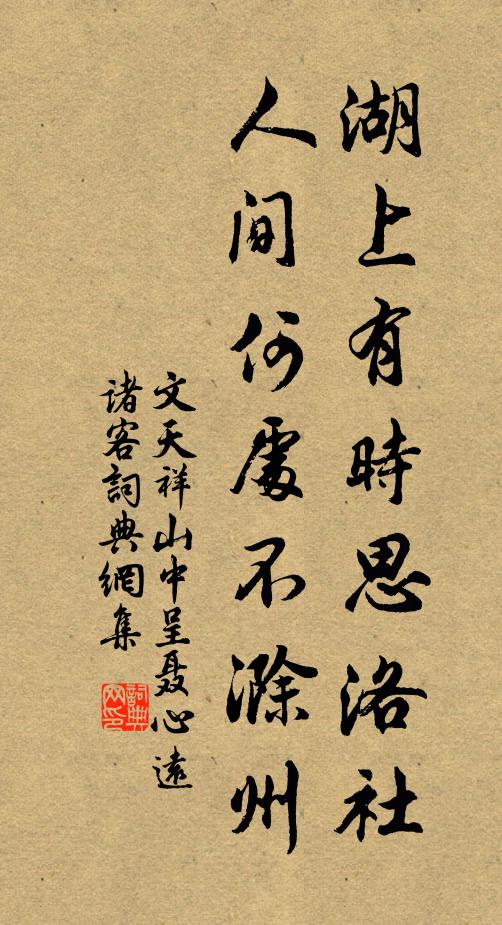 湖上有時思洛社
人间何處不滁州
文天祥山中呈聂心遠
诸客詞典網集
詞典网印